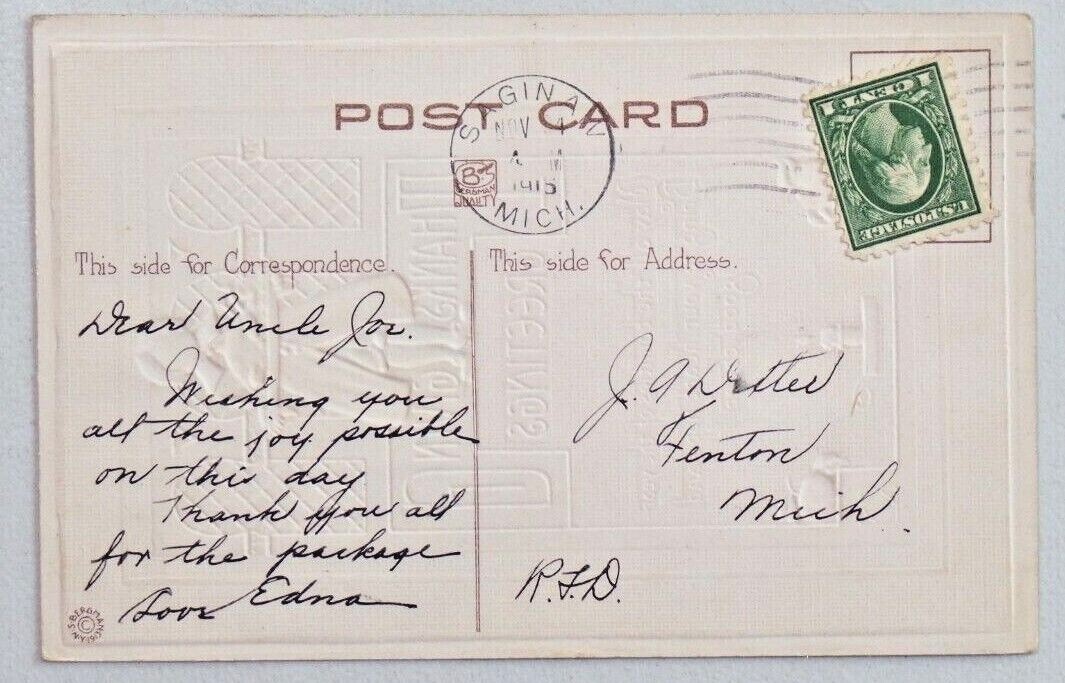 POST CARD
SAGINAW
NOV
A M
1915
MICH.
B-S
BERGMAN
QUALITY
1 CENT 1
U.S. POSTAGE
This side for Correspondence.
This side for Address.
Dear Uncle Joe.
Wishing you
all the joy possible
on this day
Thank you all
for the package
Love Edna
J. A
Fenton
Mich.
R.F.D.
THANKSGIVING
GREETINGS
S. BERGMAN
©